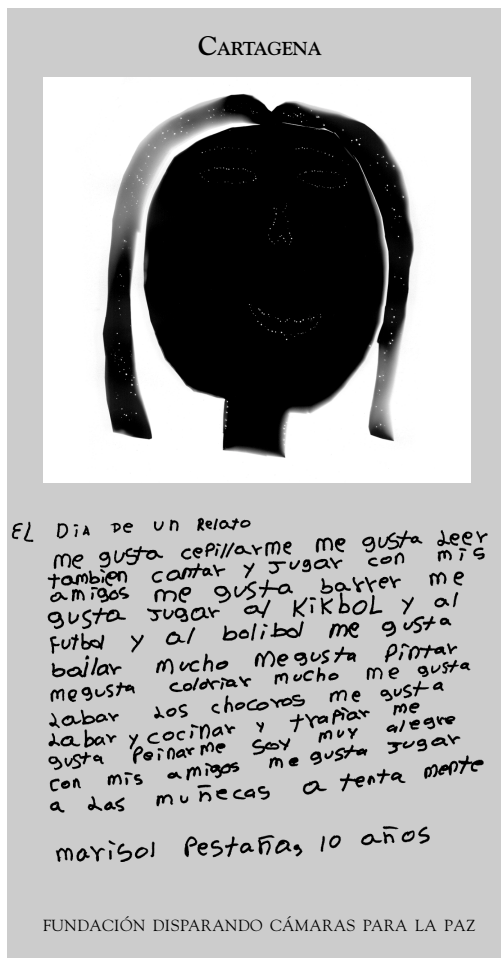 CARTAGENA
EL DiA DE un Relato
me gusta cepillarme me gusta Leer
tambien cantar y Jugar con mis
amigos me gusta barrer me
gusta Jugar al KiKboL y al
Futbol y al bolibol me gusta
bailar mucho Megusta Pintar
megusta coloriar mucho me gusta
Labar Los chocoros me gusta
Labar y cocinar y trapiar me
gusta Peinarme Soy muy alegre
con mis amigos me gusta Jugar
a Las muñecas a tenta mente
marisol Pestaña, 10 años
FUNDACIÓN DISPARANDO CÁMARAS PARA LA PAZ